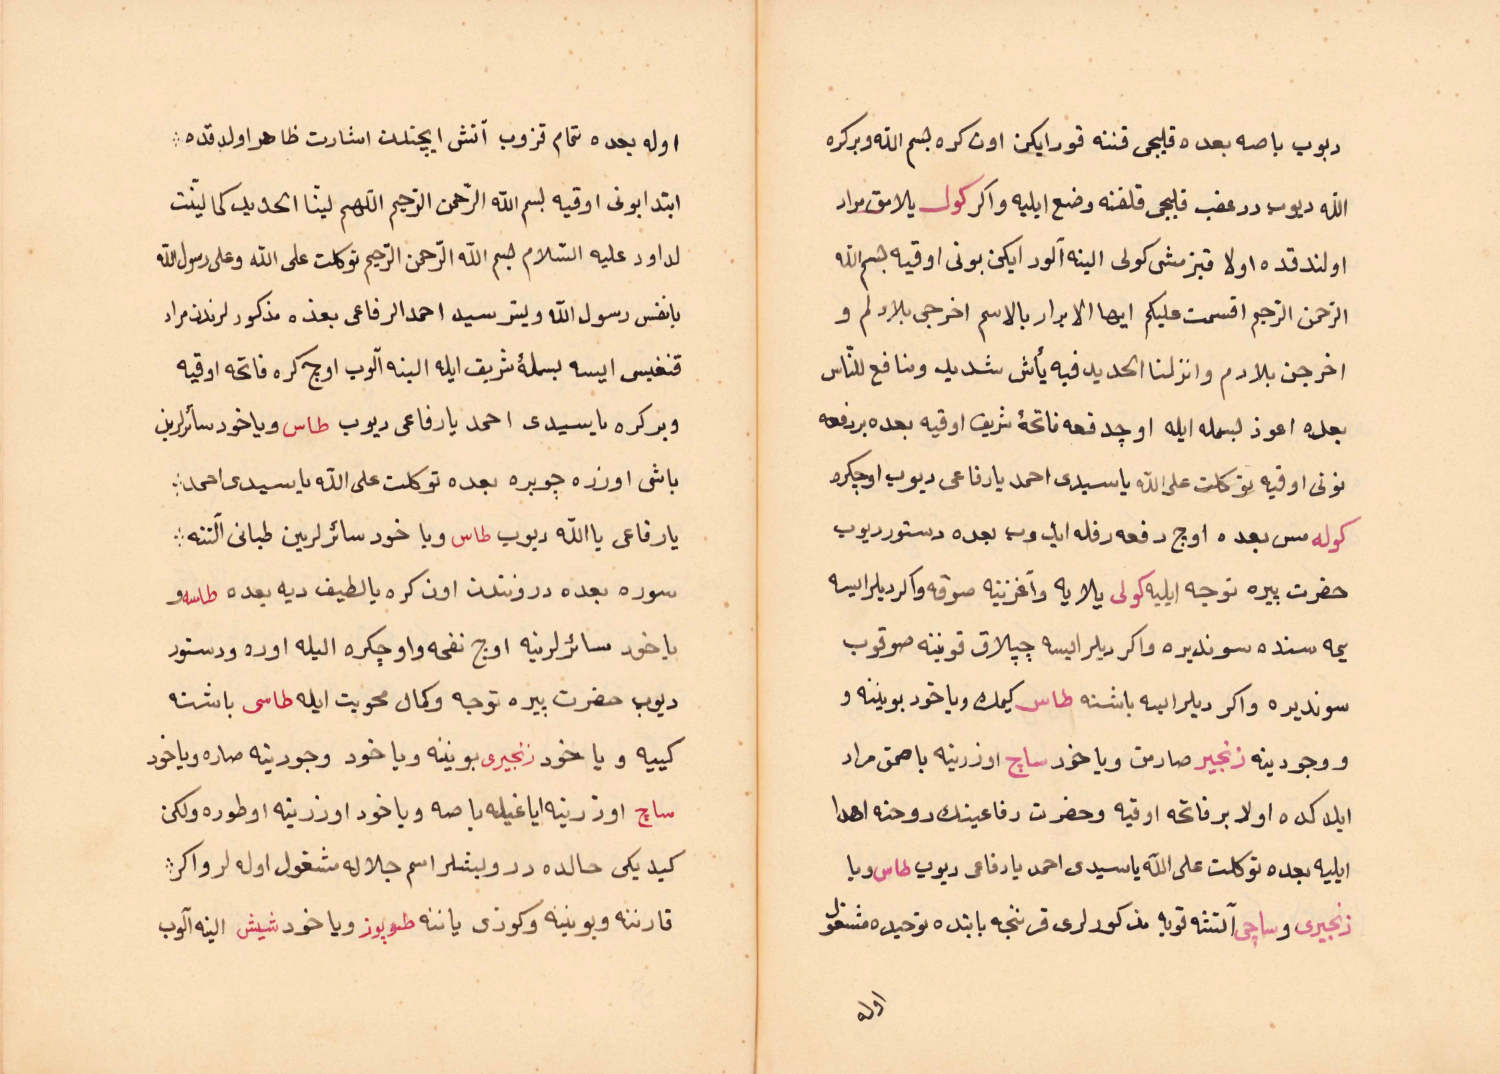 ديوب باصه بعده قليجى قننه قور ايكن اون كره بسم الله وبركره
الله ديوب درعقب قليجى قلفنه وضع ايليه واكر كول يلامق مراد
اولندقده اولا قيزمش كولى الينه آلور ايكن بونى اوقيه بسم الله
الرحمن الرحيم اقسمت عليكم ايها الابرار بالاسم اخرجى بلادم و
اخرجن بلادم وانزلنا الحديد فيه بأس شديد ومنافع للنّاس
بعده اعوذ بسمله ايله اوچ دفعه فاتحهٔ شريف اوقيه بعده بر دفعه
بونى اوقيه توكلت على الله ياسيدى احمد يارفاعى ديوب اوچكره
كوله مس بعده اوج دفعه دفله ايدوب بعده دستور ديوب
حضرت پيره توجه ايليه كولى يالايه وآغزينه صوقه واكر ديلر ايسه
يمه سنده سونديره واكر ديلر ايسه چپلاق قوينه صوقوب
سونديره واكر ديلر ايسه باشنه طاس كيمك وياخود بويننه و
و وجودينه زنجير صارمق وياخود ساج اوزرينه باصمق مراد
ايلدكده اولا بر فاتحه اوقيه وحضرت رفاعينك روحنه اهدا
ايليه بعده توكلت على الله ياسيدى احمد يارفاعى ديوب طاس ويا
زنجيرى وساجى آتشه قويه مذكورلرى قزنجه يا بتده توحيده مشغول
اوله
اوله بعده تمام قزوب آتش ايچندن اشارت ظاهر اولدقده
ابتدا بونى اوقيه بسم الله الرّحمن الرّحيم اللهم ليّنا الحديد كما ليّنت
لداود عليه السّلام بسم الله الرّحمن الرّحيم توكلت على الله وعلى رسول الله
بانفس رسول الله وبسر سيد احمد الرفاعى بعده مذكور لرندن مراد
قنغيسى ايسه بسملهٔ شريف ايله الينه آلوب اوچ كره فاتحه اوقيه
وبر كره ياسيدى احمد يارفاعى ديوب طاس وياخود سائرلرين
باشى اوزره چويره بعده توكلت على الله ياسيدى احمد
يارفاعى يا الله ديوب طاس ويا خود سائرلرين طبانى آلتنه
سوره بعده دروننـدن اون كره يالطيف ديه بعده طاسه و
ياخود سائرلرينه اوج نفحه واوچكره اليله اوره ودستور
ديوب حضرت پيره توجه وكمال محويت ايله طاسى باشنه
كييه و يا خود زنجيرى بويننه ويا خود وجودينه صاره وياخود
ساج اوزرينه اياغيله باصه وياخود اوزرينه اوطوره ولكن
كيديكى حالده درويشلر اسم جلاله مشغول اوله لر واكر
قارننه وبوينه وكوزى ياننه طوپوز ويا خود شيش الينه آلوب